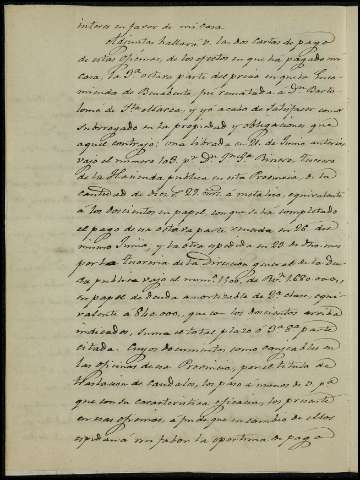 interes en favor de mi casa.
Adjuntas hallará V. las dos Cartas de pago
de estas oficinas, de los efectos en que ha pagado mi
casa, la 3ª octava parte del precio en que la Enco-
mienda de Benavente fué rematada a Dn. Barto-
lomé de Sta. Maria, y yo acabo de satisfacer como
subrogado en la propiedad y obligaciones que
aquel contrajo; una librada en 21 de Junio anterior
vajo el numero 103, pr. Dn. Tesorero
de la Hacienda publica en esta Provincia, de la
cantidad de 29 mrs. á metalico, equivalente
a los doscientos en papel, con que se ha completado
el pago de una octava parte vencida en 26 del
mismo Junio, y la otra espedida en 28 de
por la Tesoreria de la Direccion general de la deu-
da publica vajo el num.º 1306, de Rs. vn. 1.680.000,
en papel de deuda amortizable de 2ª clase, equi-
valente a 840.000, que con los doscientos arriba
indicados, suma el total plazo ó 3ª 8ª parte
citada. Cuyos documentos, como canjeables en
las oficinas de esa Provincia, por el titulo de
Traslacion de Caudales, los paso a manos de V. pa.
que con su caracteristica eficacia, los presente
en esas oficinas, á fin de que en cambio de ellos
espidan á mi fabor la oportuna de pago